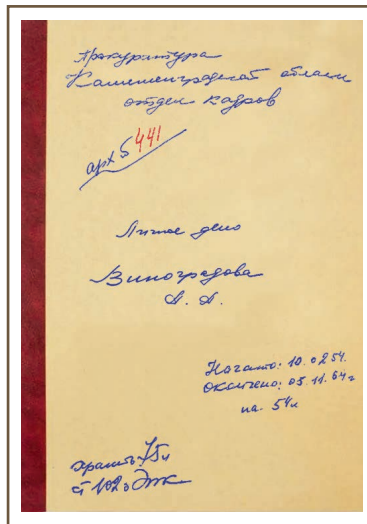 Прокуратура
Каменноградской области
отдел кадров
арх 5 441
Личное дело
Виноградова
А. А.
Начато: 10.02.54.
Окончено: 05.11.64 г
на 54 л
хранить 75 л